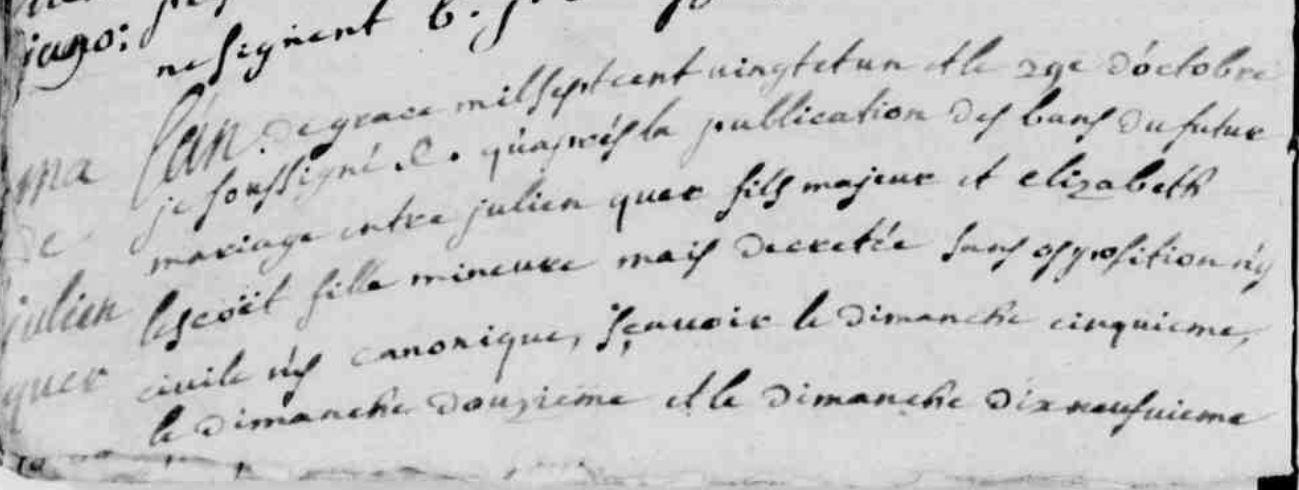 jago:
ne signent
L'an de grace mil sept cent vingt et un et le 29e d'octobre
je soussigné C. qu'après la publication des bans du futur
mariage entre julien quer fils majeur et elizabeth
lescoët fille mineure mais decretée sans opposition n'y
civile n'y canonique, sçauoir le dimanche cinquieme,
le dimanche douzieme et le dimanche dix neufuieme
ma
de
julien
quer